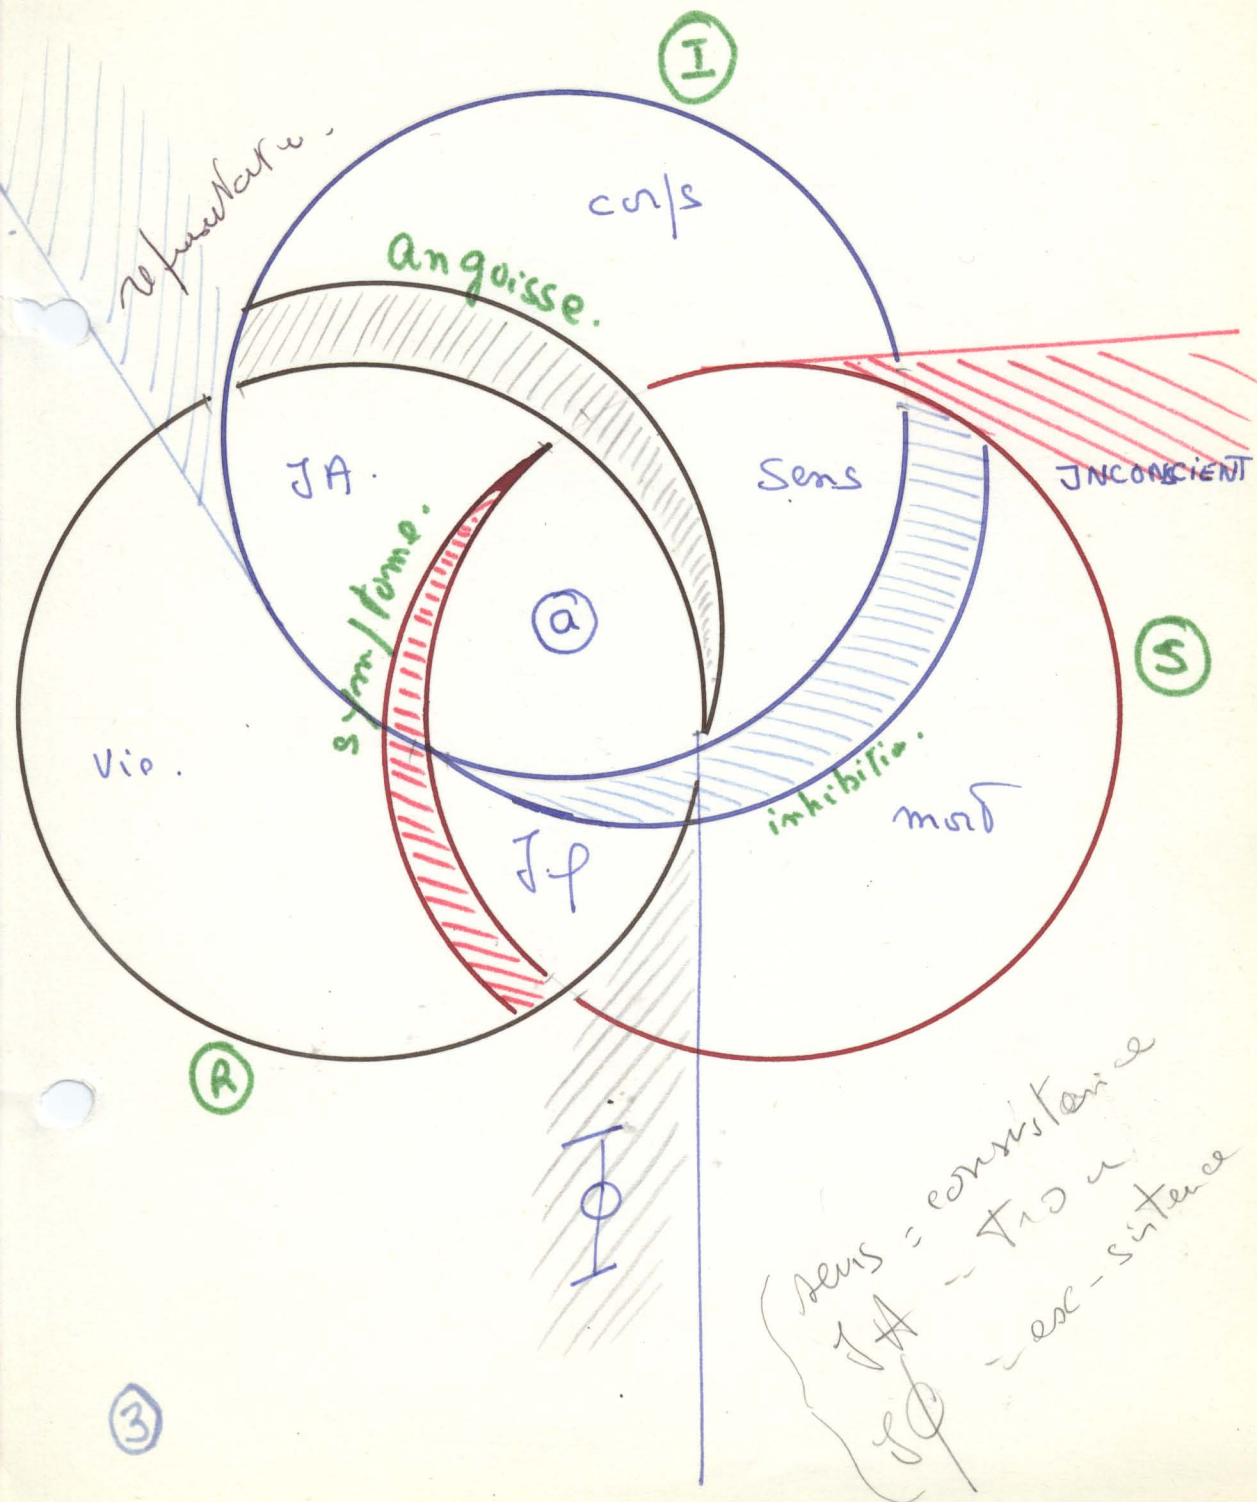 I
corps
représentation.
angoisse.
JA.
sens
INCONSCIENT
symptome.
a
S
Vie.
inhibition.
mort
Jφ
R
Φ
sens = consistance
JA - trou
Jφ - ex-sistence
3